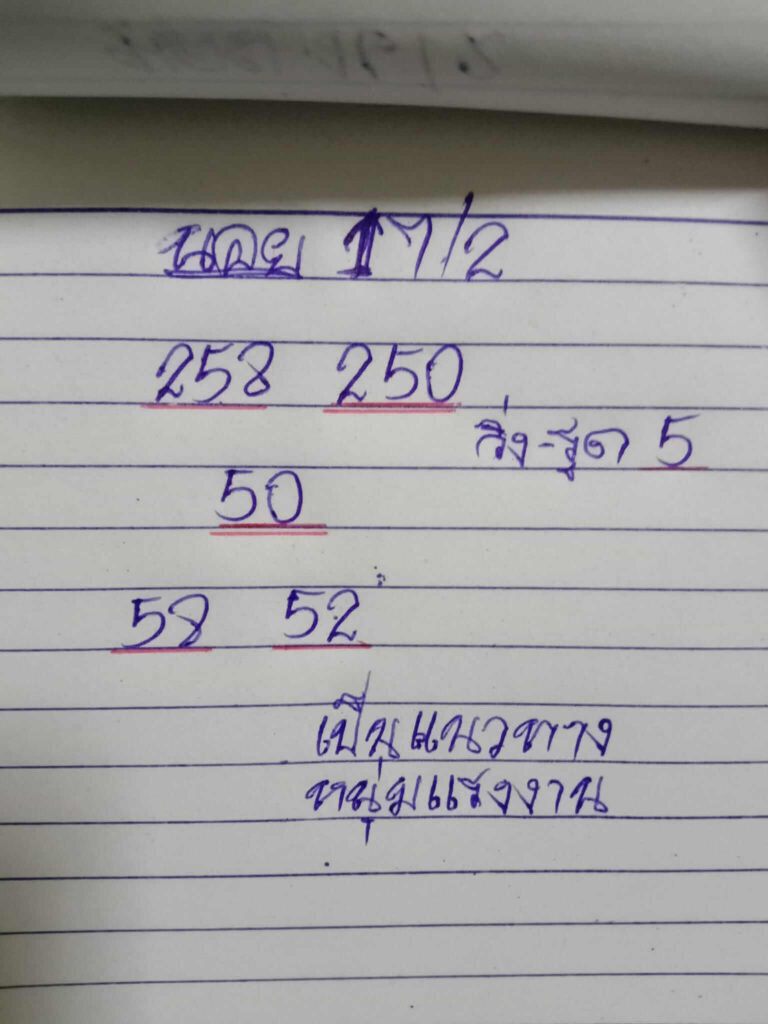 นอย 17/2
258 250
วิ่ง-รูด 5
50
58 52
เป็นแนวทาง
หนุ่มแรงงาน